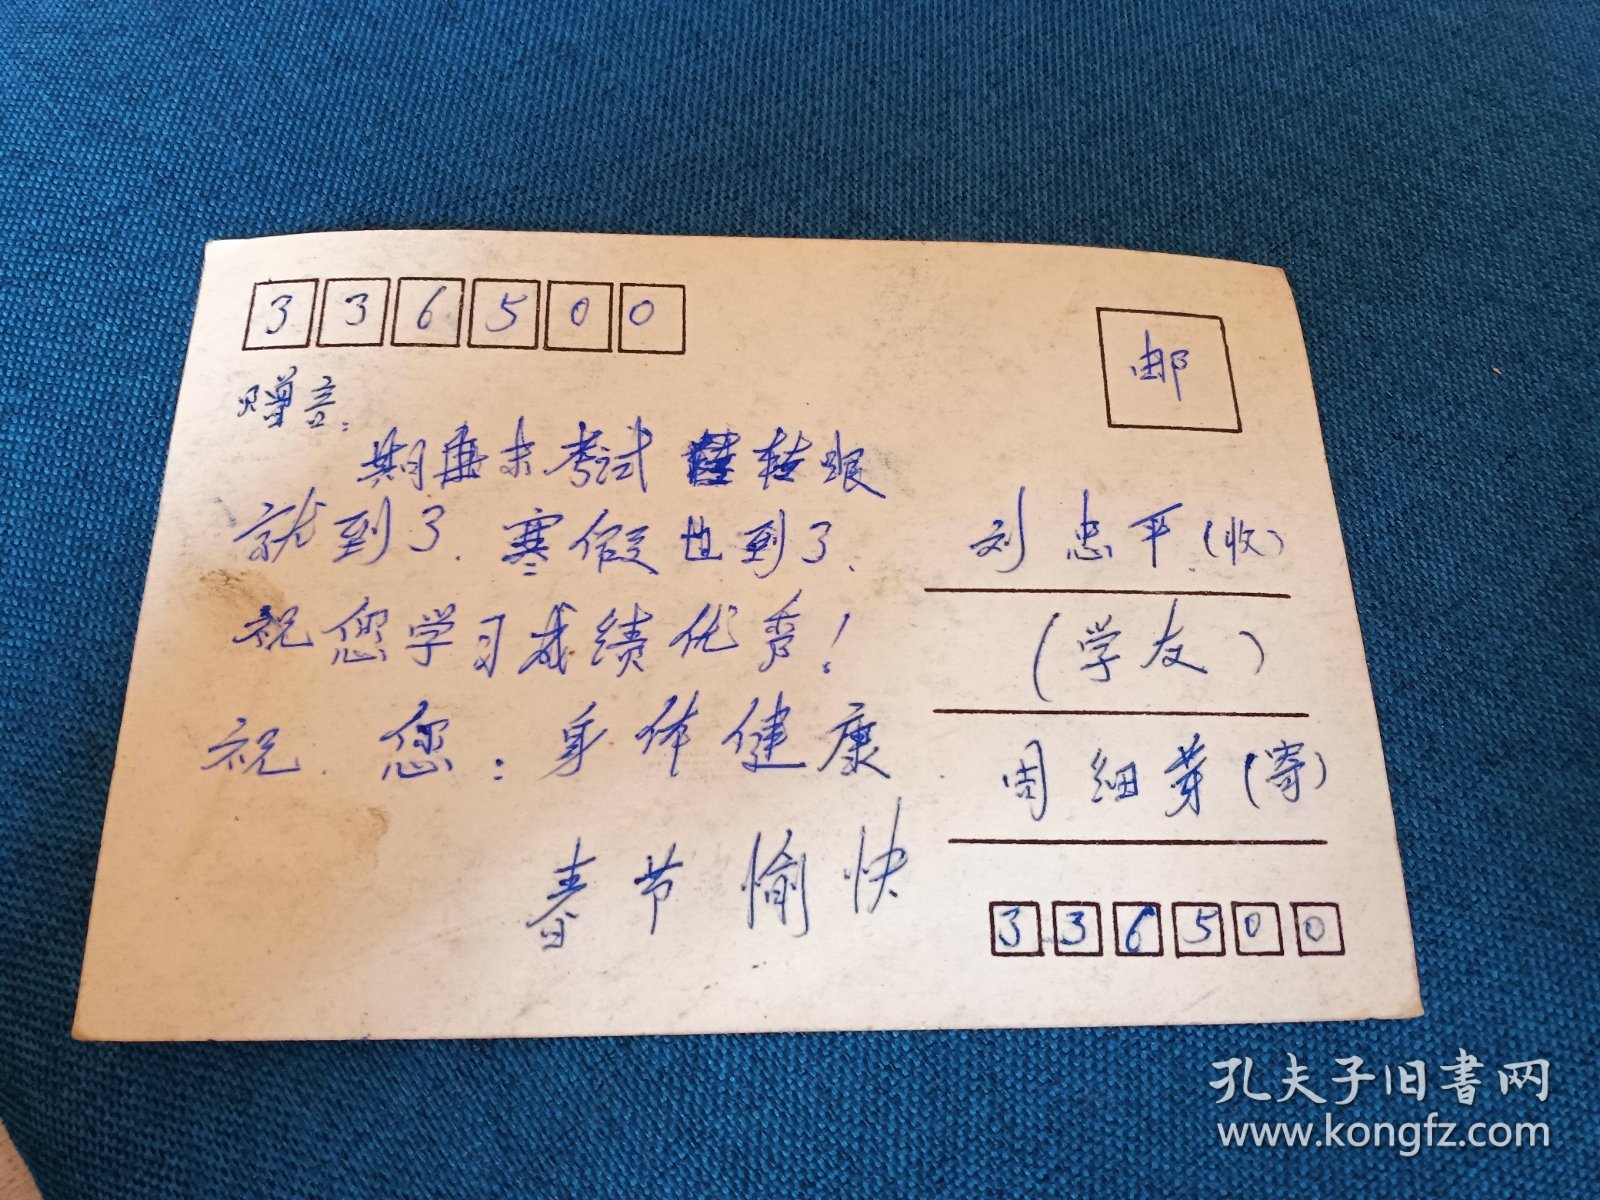 336500
邮
赠言:
期末考试 转眼
就到了. 寒假也到了.
祝您学习成绩优秀!
祝.您:身体健康
春节愉快
刘忠平(收)
(学友)
周细芽(寄)
336500
孔夫子旧书网
www.kongfz.com